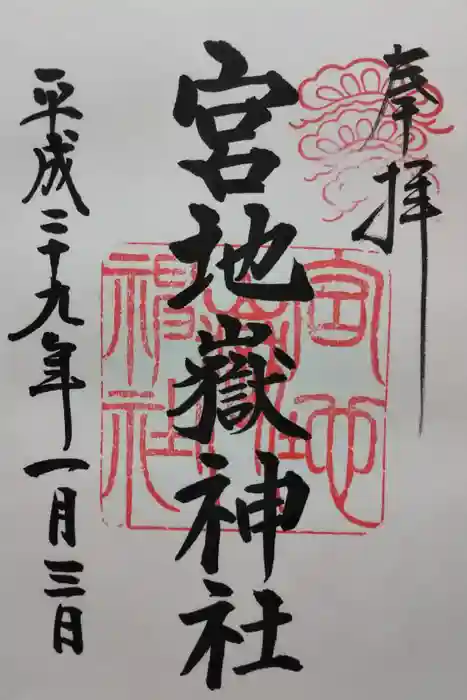 奉拝
宮地嶽神社
宮地嶽神社
平成二十九年一月三日